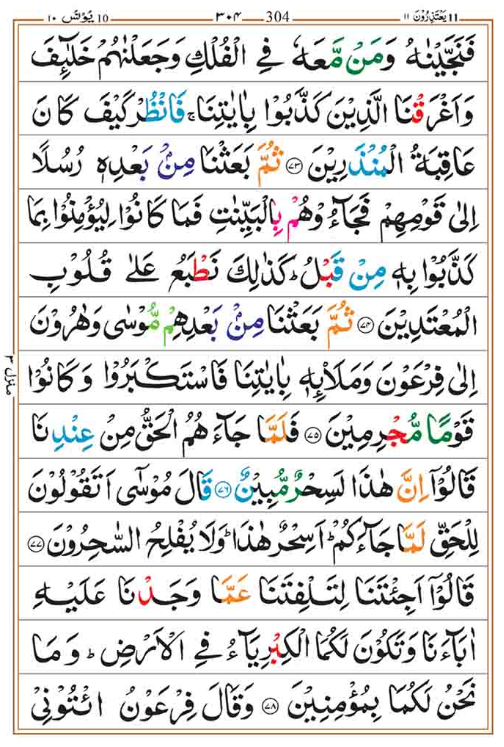 يونس ١٠ ٣٠٤ 304 يعتذرون ١١
فَنَجَّيْنٰهُ وَمَنْ مَّعَهٗ فِي الْفُلْكِ وَجَعَلْنٰهُمْ خَلٰٓئِفَ
وَاَغْرَقْنَا الَّذِيْنَ كَذَّبُوْا بِاٰيٰتِنَاۚ فَانْظُرْ كَيْفَ كَانَ
عَاقِبَةُ الْمُنْذَرِيْنَ ﴿٧٣﴾ ثُمَّ بَعَثْنَا مِنْۢ بَعْدِهٖ رُسُلًا
اِلٰى قَوْمِهِمْ فَجَآءُوْهُمْ بِالْبَيِّنٰتِ فَمَا كَانُوْا لِيُؤْمِنُوْا بِمَا
كَذَّبُوْا بِهٖ مِنْ قَبْلُ ؕ كَذٰلِكَ نَطْبَعُ عَلٰى قُلُوْبِ
الْمُعْتَدِيْنَ ﴿٧٤﴾ ثُمَّ بَعَثْنَا مِنْۢ بَعْدِهِمْ مُّوْسٰى وَهٰرُوْنَ
اِلٰى فِرْعَوْنَ وَمَلَا۟ئِهٖ بِاٰيٰتِنَا فَاسْتَكْبَرُوْا وَكَانُوْا
قَوْمًا مُّجْرِمِيْنَ ﴿٧٥﴾ فَلَمَّا جَآءَهُمُ الْحَقُّ مِنْ عِنْدِنَا
قَالُوْۤا اِنَّ هٰذَا لَسِحْرٌ مُّبِيْنٌ ﴿٧٦﴾ قَالَ مُوْسٰۤى اَتَقُوْلُوْنَ
لِلْحَقِّ لَمَّا جَآءَكُمْ ؕ اَسِحْرٌ هٰذَا ؕ وَلَا يُفْلِحُ السّٰحِرُوْنَ ﴿٧٧﴾
قَالُوْۤا اَجِئْتَنَا لِتَلْفِتَنَا عَمَّا وَجَدْنَا عَلَيْهِ
اٰبَآءَنَا وَتَكُوْنَ لَكُمَا الْكِبْرِيَآءُ فِي الْاَرْضِ ؕ وَمَا
نَحْنُ لَكُمَا بِمُؤْمِنِيْنَ ﴿٧٨﴾ وَقَالَ فِرْعَوْنُ ائْتُوْنِيْ
منزل ٣